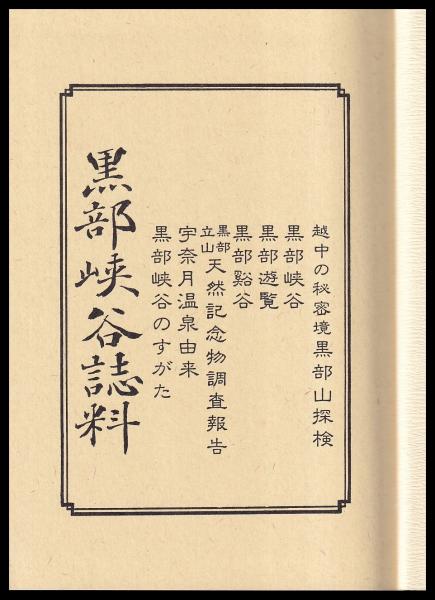 越中の秘密境黒部山探検
黒部峡谷
黒部遊覧
黒部谿谷
黒部立山天然記念物調査報告
宇奈月温泉由来
黒部峡谷のすがた
黒部峡谷誌料